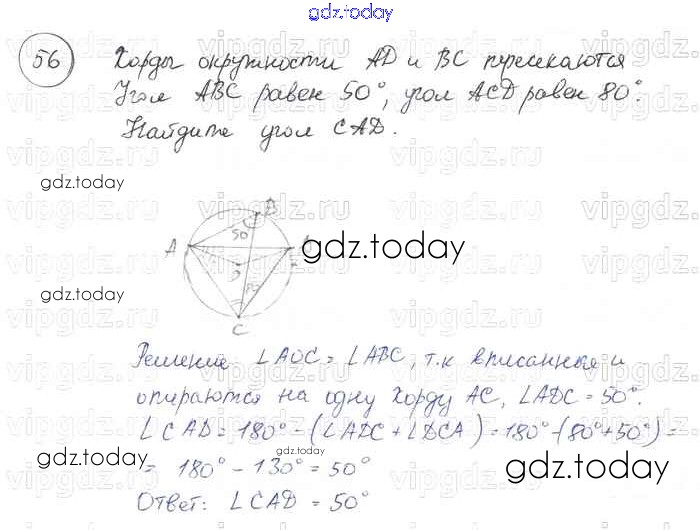 gdz.today
56 Хорды окружности AD и BC пересекаются
Угол ABC равен 50°, угол ACD равен 80°.
Найдите угол CAD.
vipgdz.ru
gdz.today
B
A 50°
gdz.today
C
gdz.today
Решение: ∠AOC = ∠ABC, т.к вписанные и
опираются на одну хорду AC, ∠ADC = 50°.
∠CAD = 180° - (∠ADC + ∠DCA) = 180° - (80° + 50°) =
gdz.today
= 180° - 130° = 50°
gdz.today
gdz.today
Ответ: ∠CAD = 50°